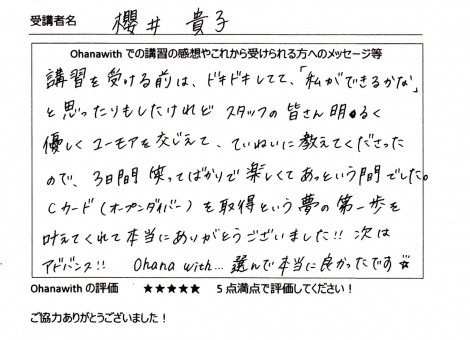 受講者名 櫻井 貴子
Ohanawith での講習の感想やこれから受けられる方へのメッセージ等
講習を受ける前は、ドキドキしてて、「私ができるかな」
と思ったりもしたけれど スタッフの皆さん明るく
優しくユーモアを交じえて、ていねいに教えてくださった
ので、3日間 笑ってばかりで楽しくてあっという間でした。
Cカード(オープンダイバー)を取得という夢の第一歩を
叶えてくれて本当にありがとうございました!! 次は
アドバンス!! Ohana with… 選んで本当に良かったです☆
Ohanawith の評価 ★★★★★ 5点満点で評価してください!
ご協力ありがとうございました!